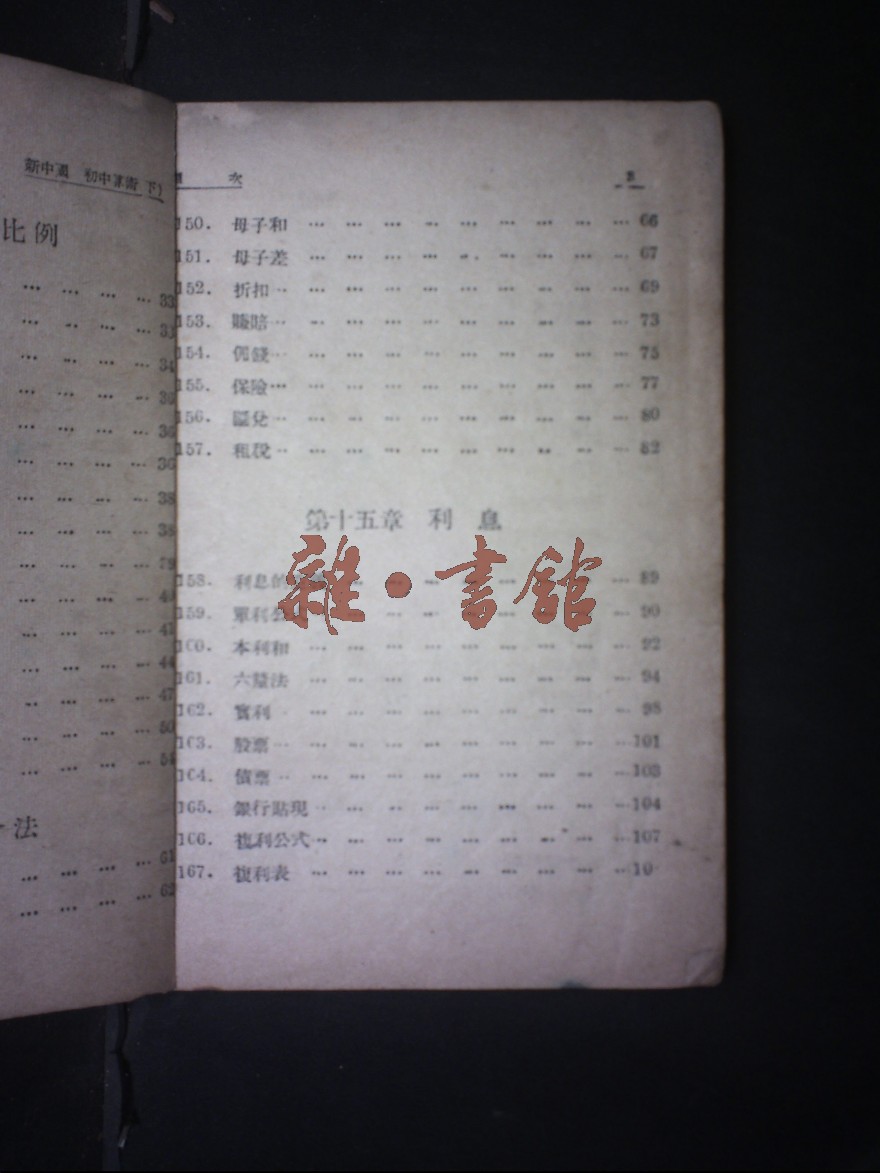 新中國 初中算術 下
比例
… … … … 33
… … … … 33
… … … … 34
… … … … 36
… … … … 36
… … … … 36
… … … … 38
… … … … 38
… … … …
… … … …
… … … …
… … … … 44
… … … … 47
… … … … 50
… … … … 54
法
… … … … 61
… … … … 62
目 次
150. 母子和 … … … … … … … … … 66
151. 母子差 … … … … … … … … … 67
152. 折扣 … … … … … … … … … 69
153. 賺賠 … … … … … … … … … 73
154. 佣錢 … … … … … … … … … 75
155. 保險 … … … … … … … … … 77
156. 匯兌 … … … … … … … … … 80
157. 租稅 … … … … … … … … … 82
第十五章 利 息
雜·書館
158. 利息的 … … … … … … … 89
159. 單利公 … … … … … … … 90
160. 本利和 … … … … … … … … … 92
161. 六釐法 … … … … … … … … … 94
162. 實利 … … … … … … … … … 98
163. 股票 … … … … … … … … … 101
164. 債票 … … … … … … … … … 103
165. 銀行貼現 … … … … … … … … … 104
166. 複利公式 … … … … … … … … … 107
167. 複利表 … … … … … … … … … 10